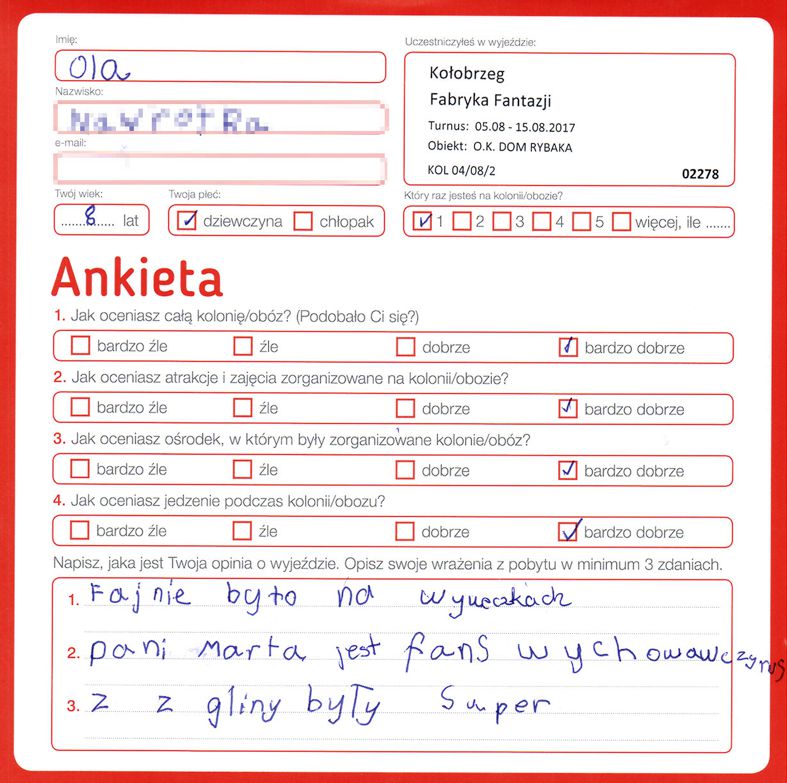 Imię:
Ola
Nazwisko:
e-mail:
Uczestniczyłeś w wyjeździe:
Kołobrzeg
Fabryka Fantazji
Turnus: 05.08 - 15.08.2017
Obiekt: O.K. DOM RYBAKA
KOL 04/08/2 02278
Twój wiek:
8 lat
Twoja płeć:
dziewczyna chłopak
Który raz jesteś na kolonii/obozie?
1 2 3 4 5 więcej, ile .......
Ankieta
1. Jak oceniasz całą kolonię/obóz? (Podobało Ci się?)
bardzo źle źle dobrze bardzo dobrze
2. Jak oceniasz atrakcje i zajęcia zorganizowane na kolonii/obozie?
bardzo źle źle dobrze bardzo dobrze
3. Jak oceniasz ośrodek, w którym były zorganizowane kolonie/obóz?
bardzo źle źle dobrze bardzo dobrze
4. Jak oceniasz jedzenie podczas kolonii/obozu?
bardzo źle źle dobrze bardzo dobrze
Napisz, jaka jest Twoja opinia o wyjeździe. Opisz swoje wrażenia z pobytu w minimum 3 zdaniach.
1. Fajnie było na
2. pani Marta jest fans
3. z z gliny były super